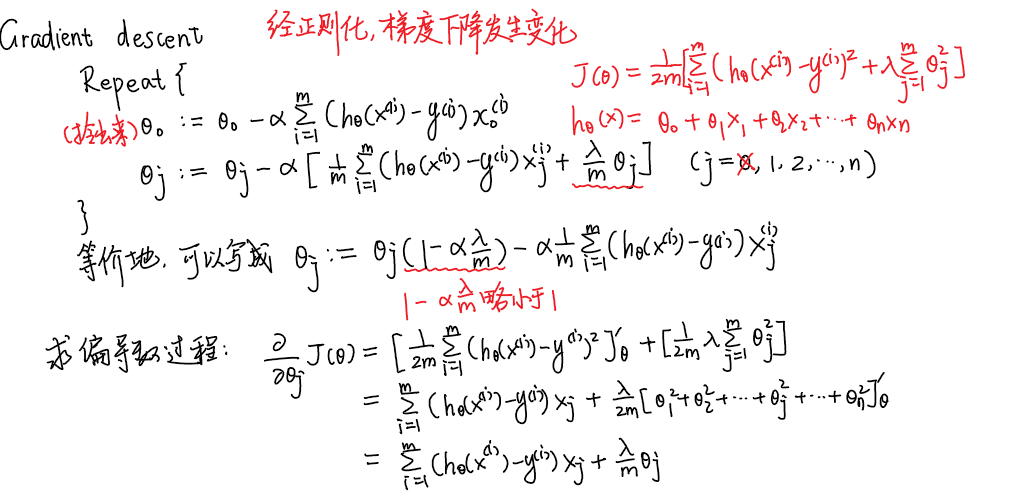 Gradient descent 经正则化,梯度下降发生变化
Repeat {
J(θ) = \frac{1}{2m}[\sum_{i=1}^{m}(h_θ(x^{(i)})-y^{(i)})^2 + λ\sum_{j=1}^{m}θ_j^2]
(拎出来) θ_0 := θ_0 - α\sum_{i=1}^{m}(h_θ(x^{(i)})-y^{(i)})x_0^{(i)}
h_θ(x) = θ_0 + θ_1x_1 + θ_2x_2 + ⋯ + θ_nx_n
θ_j := θ_j - α[\frac{1}{m}\sum_{i=1}^{m}(h_θ(x^{(i)})-y^{(i)})x_j^{(i)} + \frac{λ}{m}θ_j] (j=0, 1, 2, ⋯, n)
}
等价地, 可以写成 θ_j := θ_j(1-α\frac{λ}{m}) - α\frac{1}{m}\sum_{i=1}^{m}(h_θ(x^{(i)})-y^{(i)})x_j^{(i)}
1-α\frac{λ}{m}略小于1
求偏导数过程: \frac{∂}{∂θ_j}J(θ) = [\frac{1}{2m}\sum_{i=1}^{m}(h_θ(x^{(i)})-y^{(i)})^2]'_θ + [\frac{1}{2m}λ\sum_{j=1}^{m}θ_j^2]
= \sum_{i=1}^{m}(h_θ(x^{(i)})-y^{(i)})x_j + \frac{λ}{2m}[θ_1^2+θ_2^2+⋯+θ_j^2+⋯+θ_n^2]'_θ
= \sum_{i=1}^{m}(h_θ(x^{(i)})-y^{(i)})x_j + \frac{λ}{m}θ_j